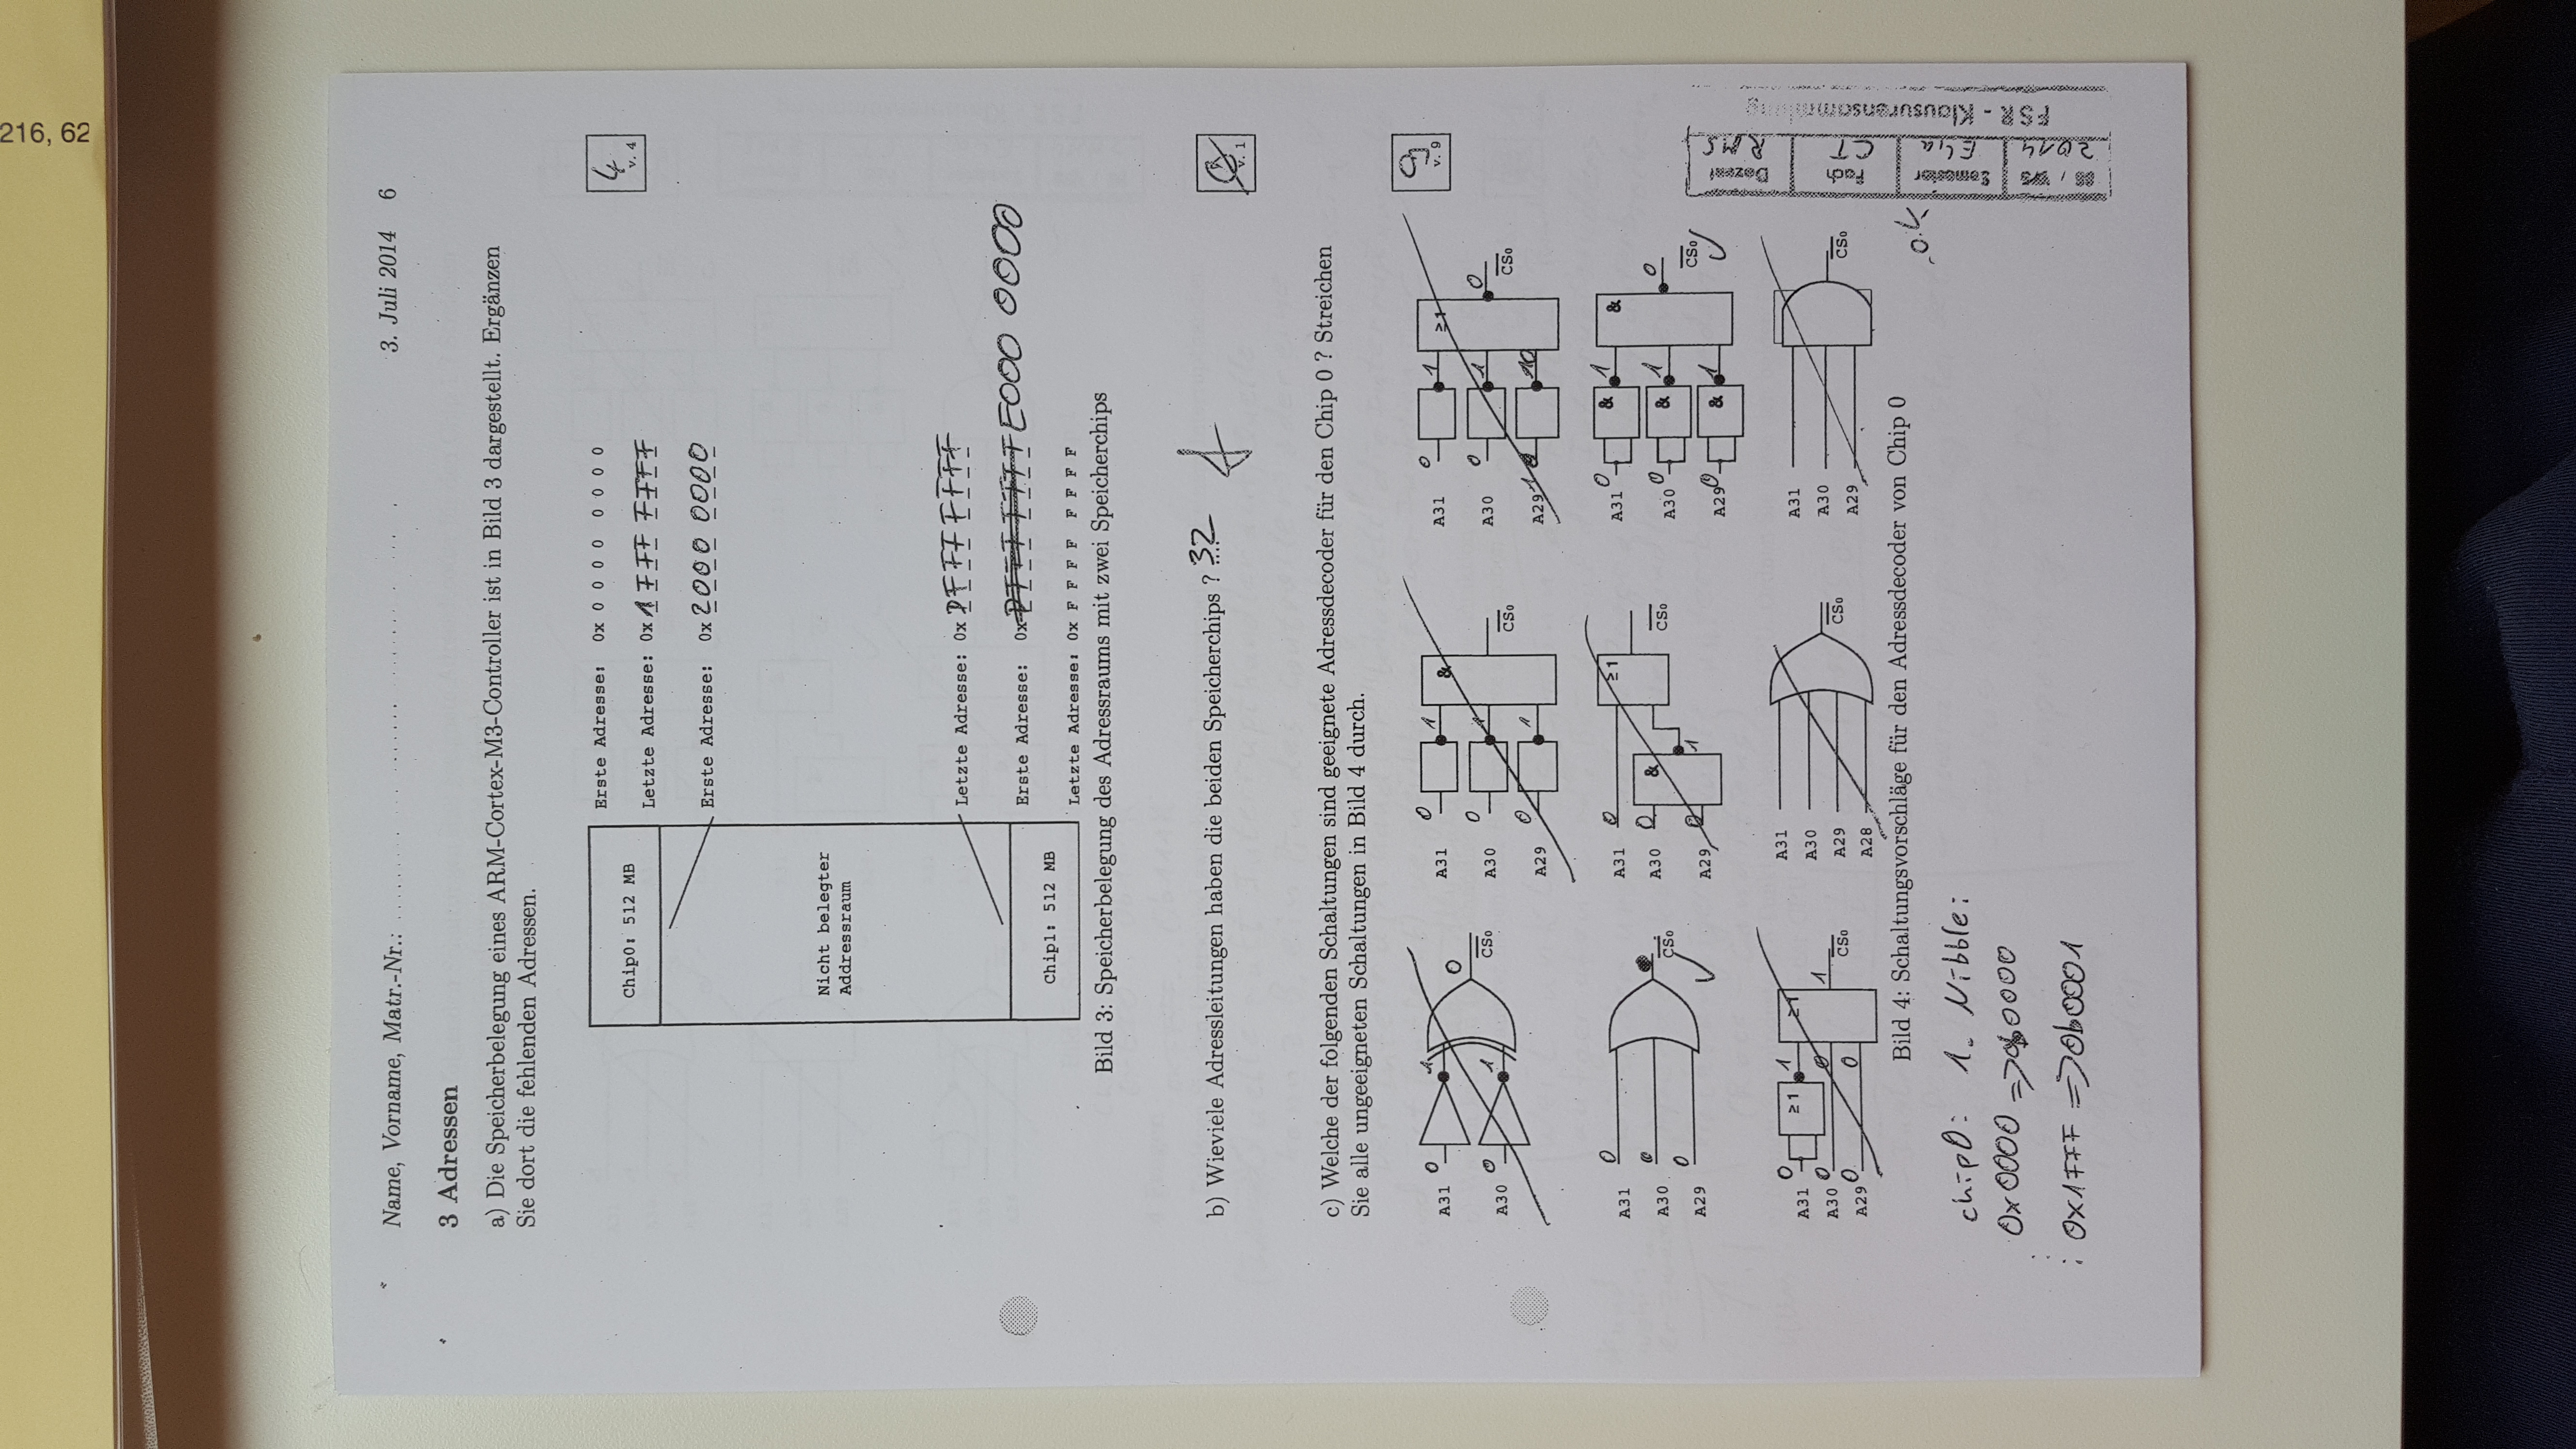 216, 62
Name, Vorname, Matr.-Nr.:
3. Juli 2014 6
3 Adressen
a) Die Speicherbelegung eines ARM-Cortex-M3-Controller ist in Bild 3 dargestellt. Ergänzen
Sie dort die fehlenden Adressen.
4
v. 4
Chip0: 512 MB
Erste Adresse: 0x 0 0 0 0 0 0 0 0
Letzte Adresse: 0x 1FFF FFFF
Erste Adresse: 0x 2000 0000
Nicht belegter
Addressraum
Letzte Adresse: 0x DFFF FFFF
Erste Adresse: 0x DFFF FFFF E000 0000
Chip1: 512 MB
Letzte Adresse: 0x F F F F F F F F
Bild 3: Speicherbelegung des Adressraums mit zwei Speicherchips
b) Wieviele Adressleitungen haben die beiden Speicherchips ? 32 f
v. 1
c) Welche der folgenden Schaltungen sind geeignete Adressdecoder für den Chip 0 ? Streichen
Sie alle ungeeigneten Schaltungen in Bild 4 durch.
9
v. 9
A31 0 1
A30 0 1
0 CS0
A31 0 1
A30 0 1
A29 0 1
& CS0
A31 0 1
A30 0 1
A29 1 0 10
≥1 0 CS0
A31 0
A30 0
A29 0
CS0
A31 0
A30 0
A29 0
& 1 ≥1 CS0
A31 0 & 1
A30 0 & 1
A29 0 & 1
& 0 CS0
A31 0 ≥1 1
A30 0 0
A29 0 0
≥1 1 CS0
A31
A30
A29
A28
CS0
A31
A30
A29
CS0
Bild 4: Schaltungsvorschläge für den Adressdecoder von Chip 0
o.k.
chip0: 1. Nibble:
0x0000 => 0b0000
0x1FFF => 0b0001
SS / WS Semester Fach Dozent
2014 E4a CT RMS
FSR - Klausurensammlung